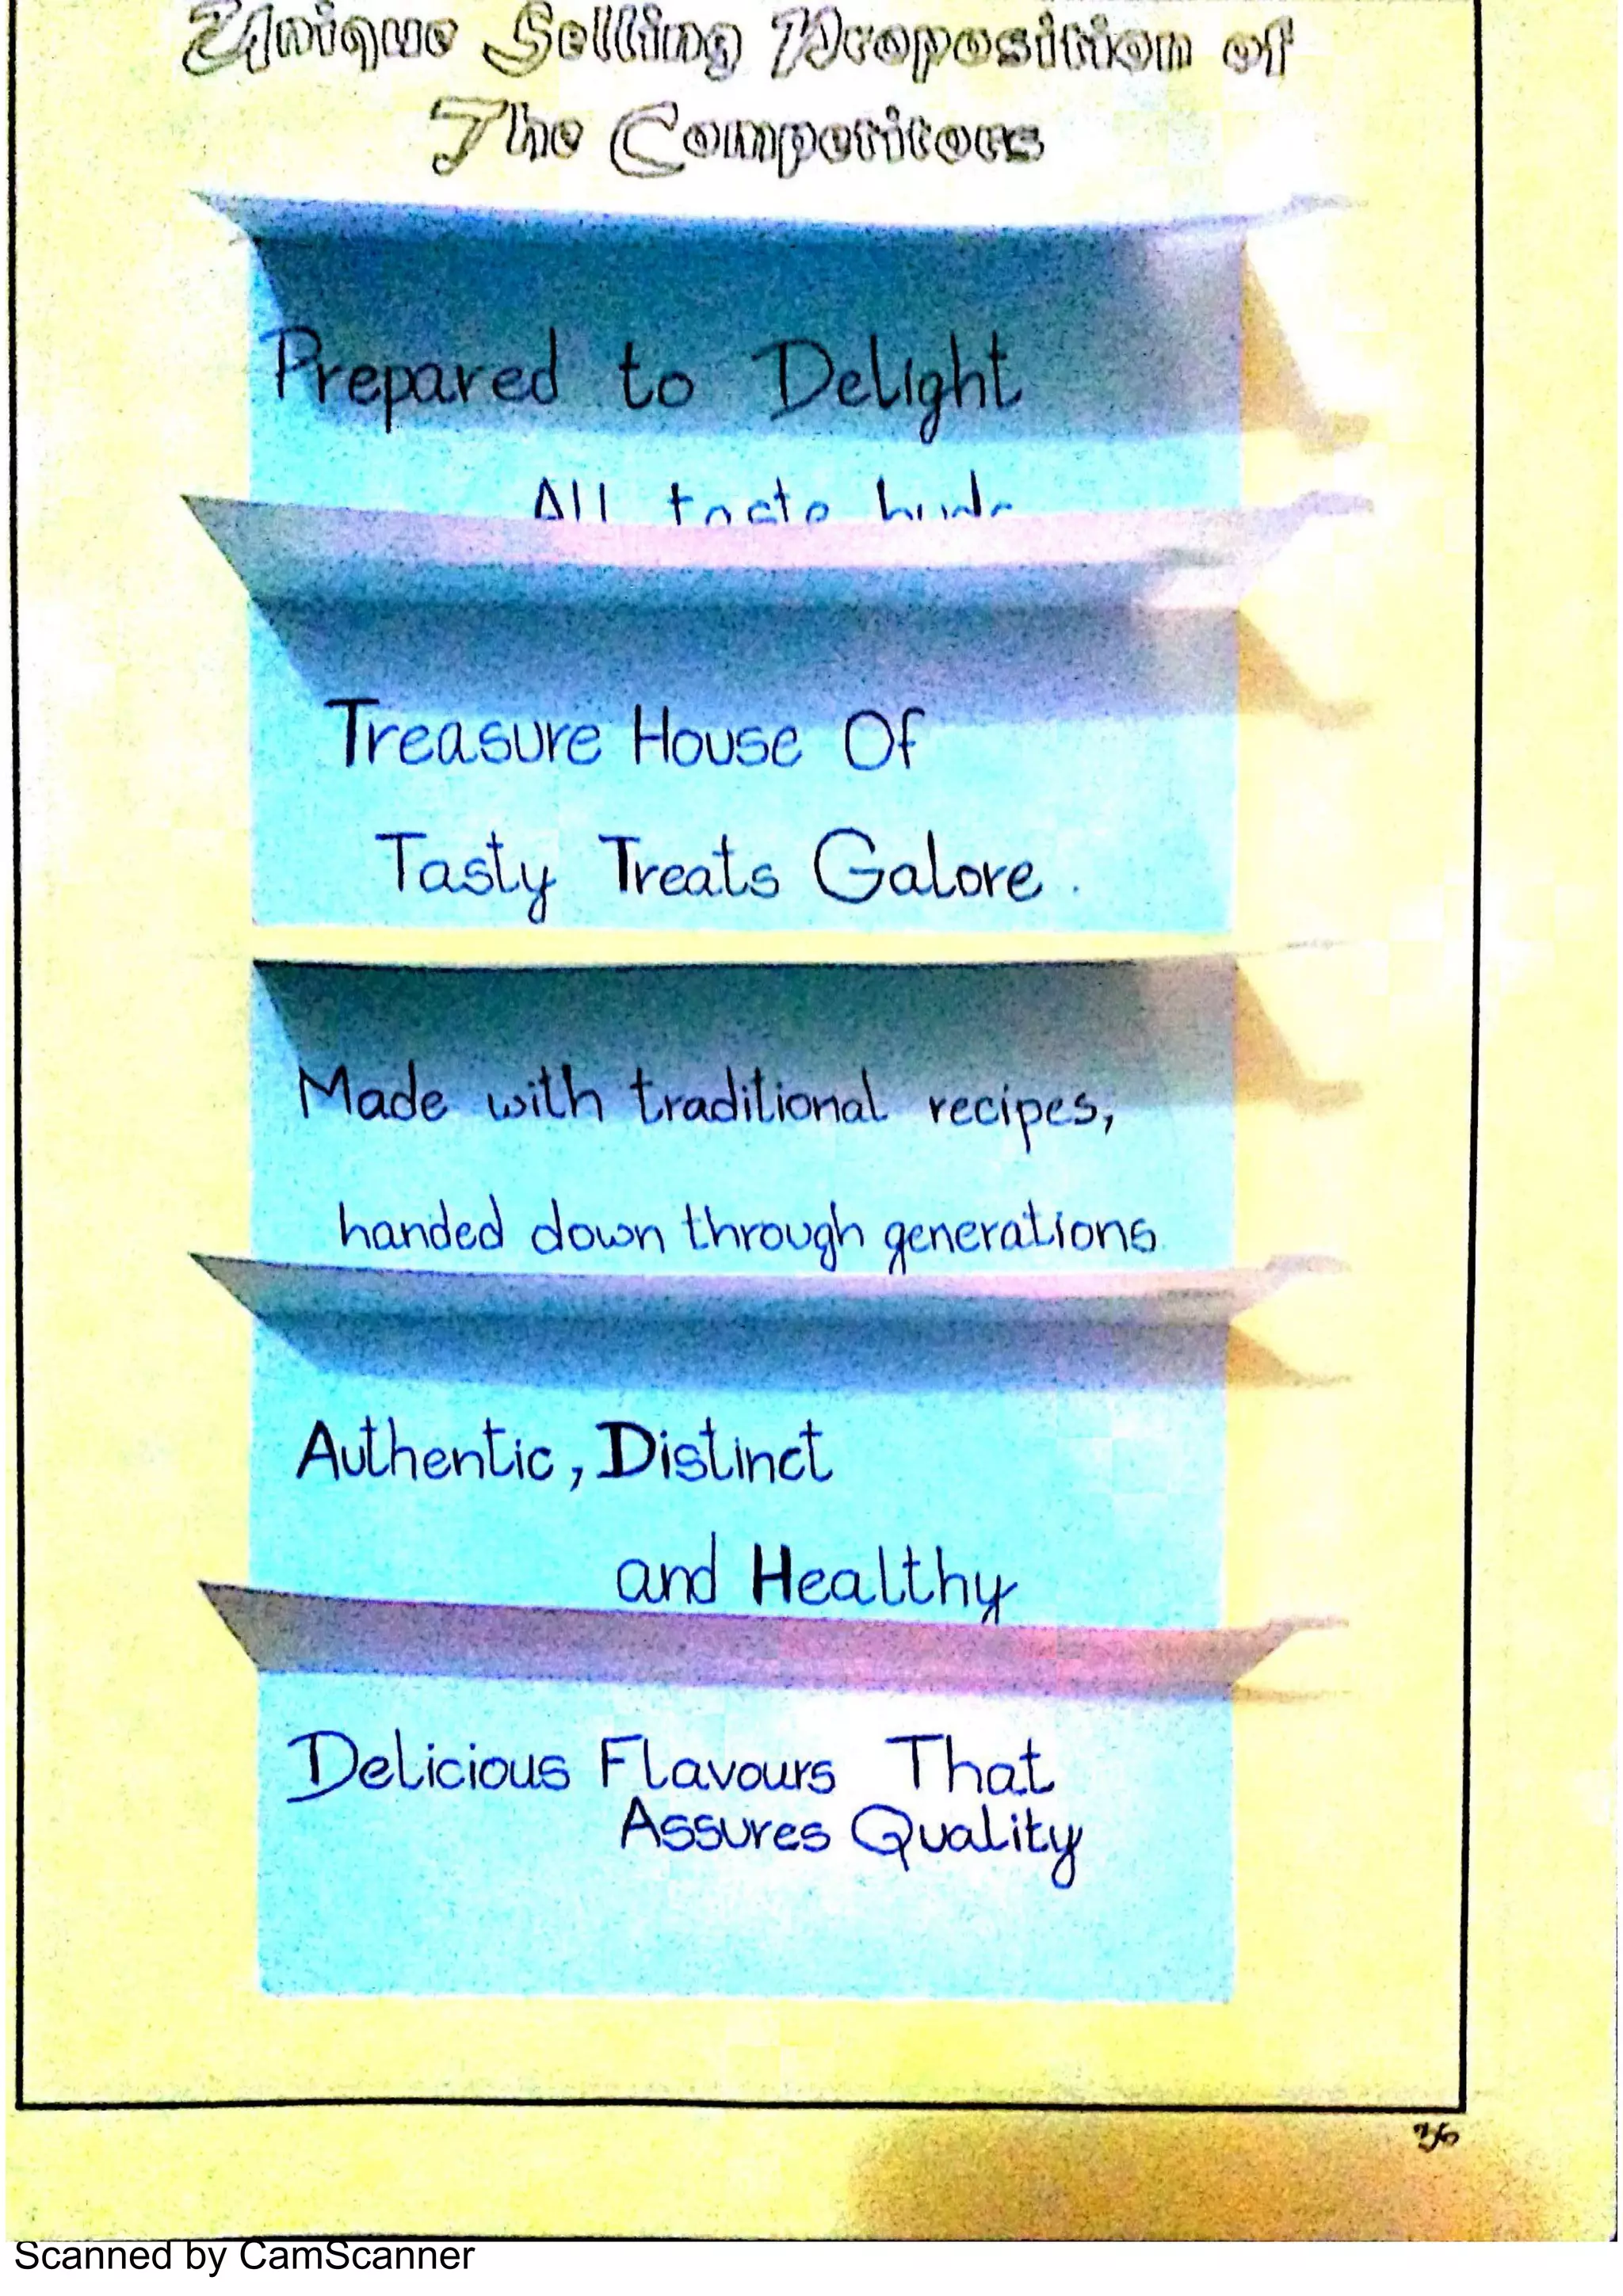 Unique Selling Proposition of
The Competitors
Prepared to Delight
All taste buds
Treasure House Of
Tasty Treats Galore.
Made with traditional recipes,
handed down through generations
Authentic, Distinct
and Healthy
Delicious Flavours That
Assures Quality
36
Scanned by CamScanner